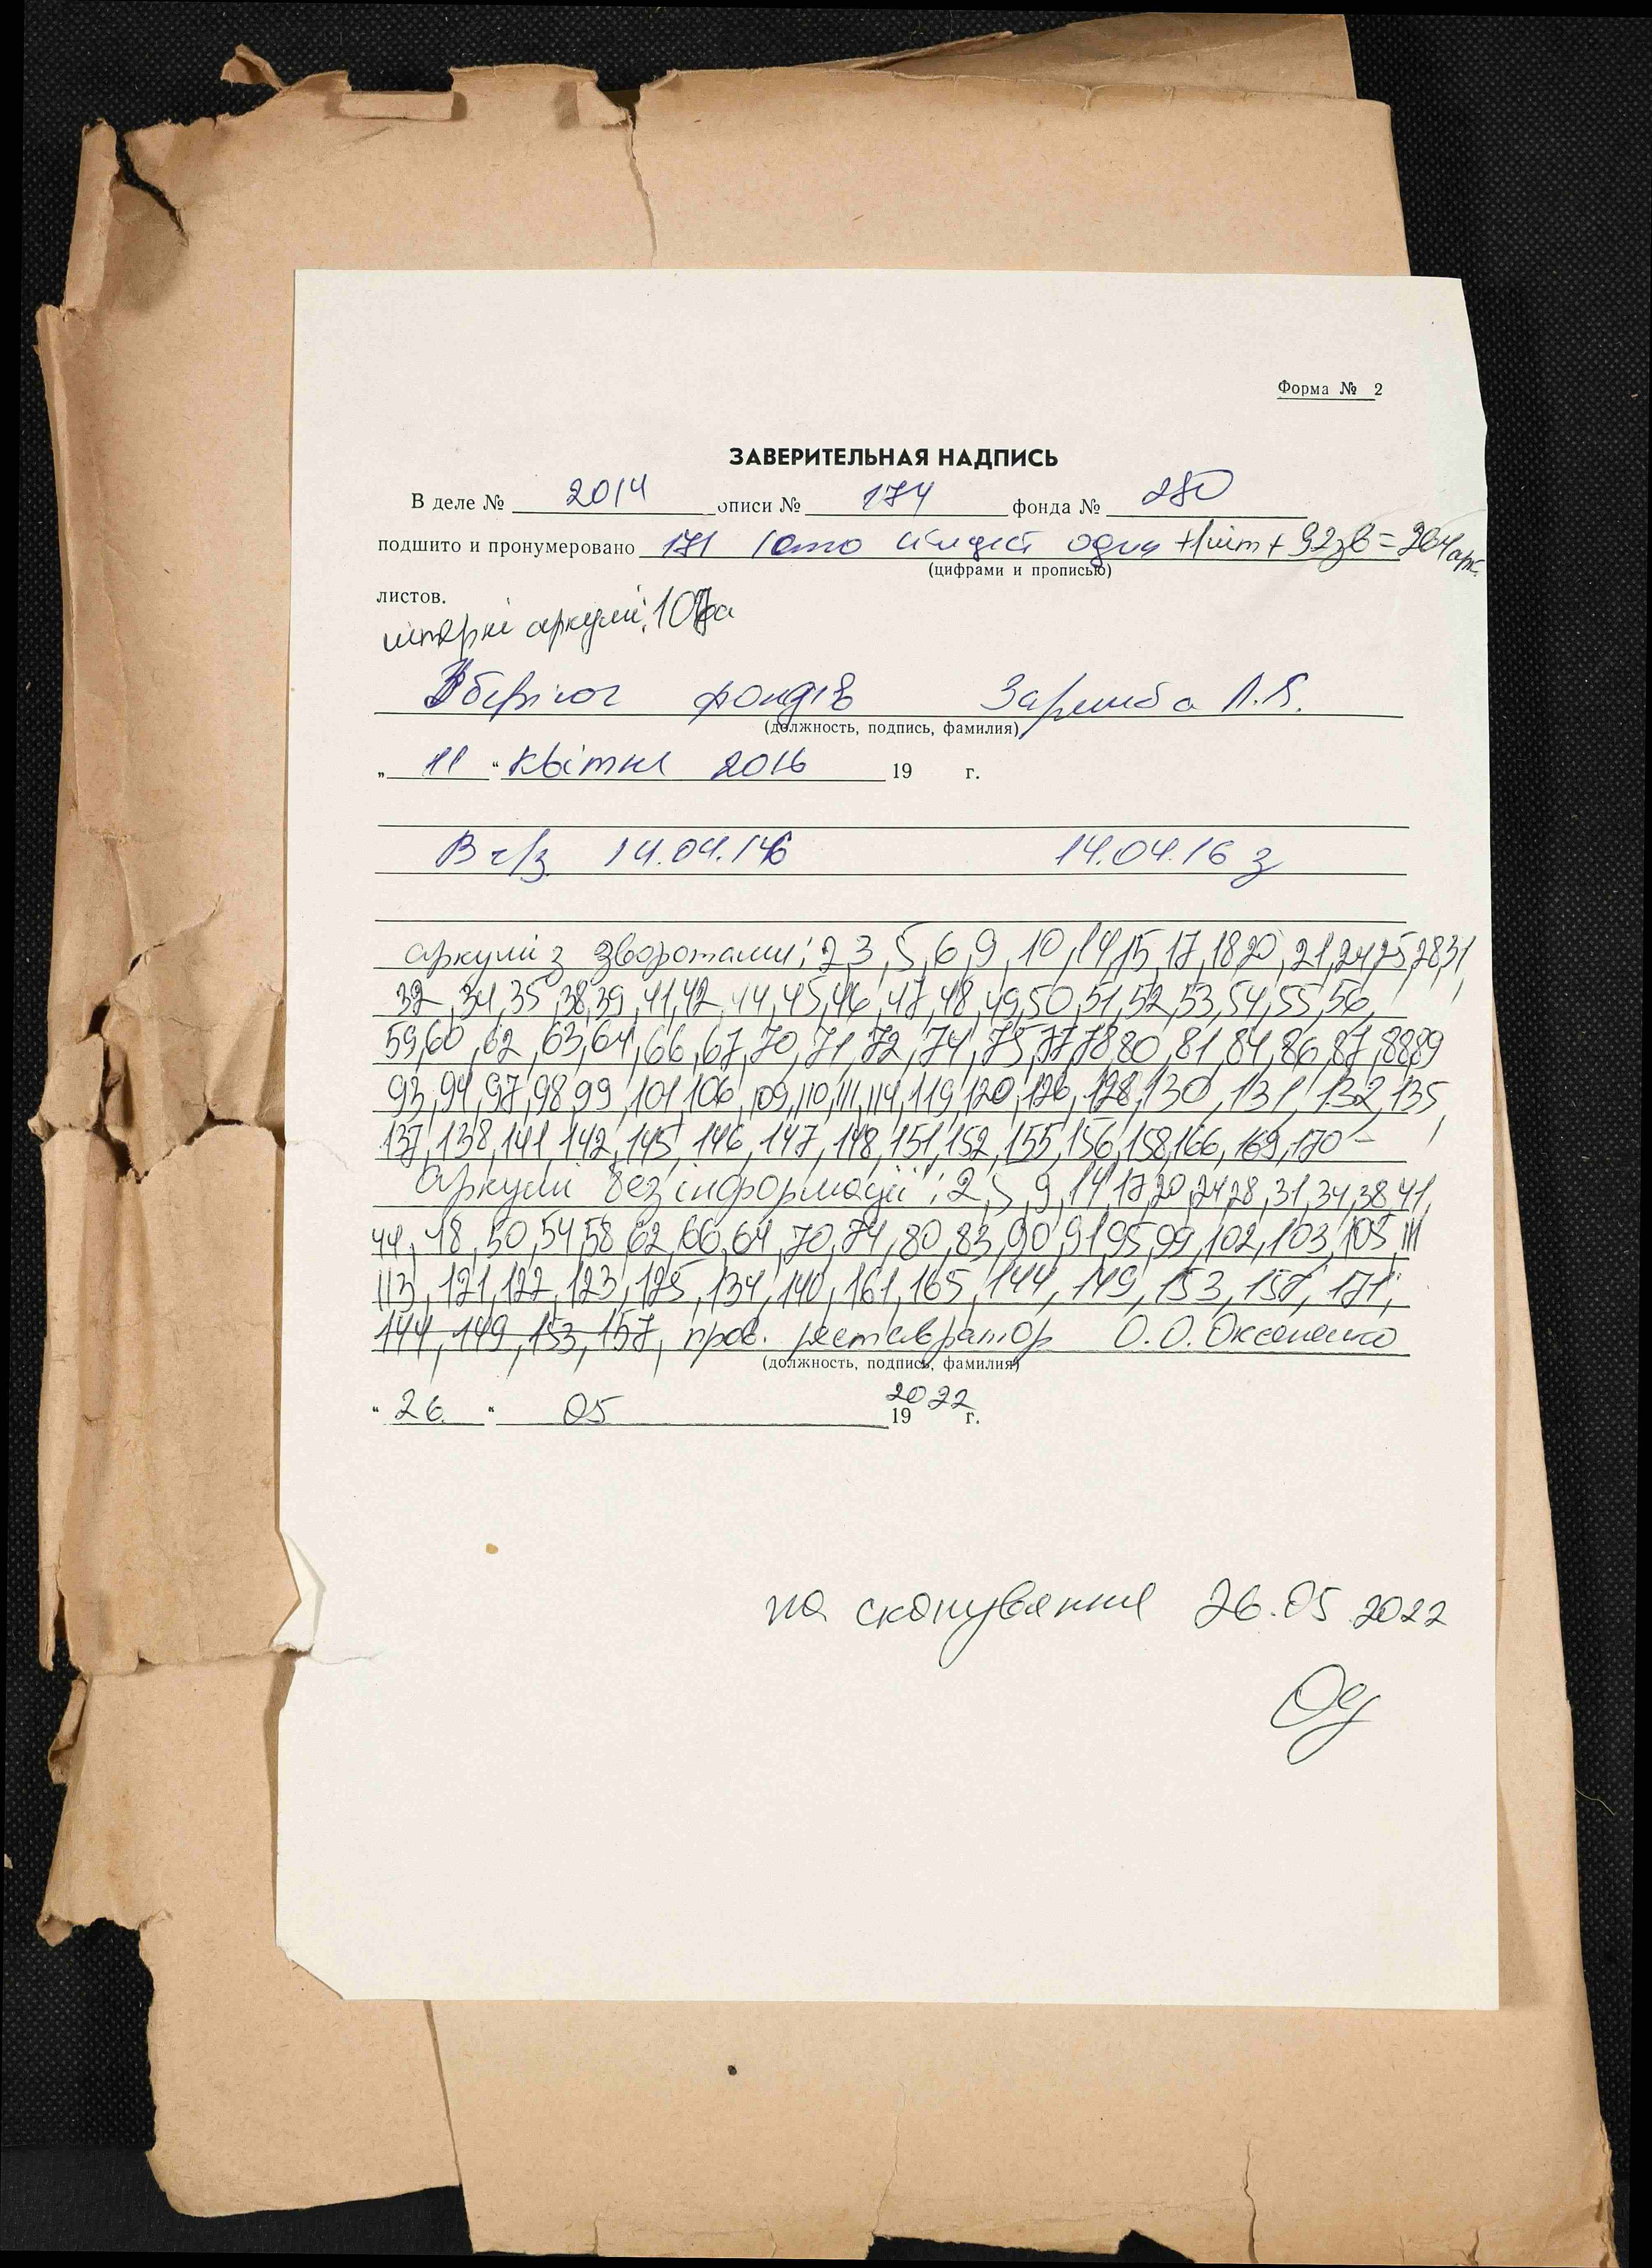 Форма № 2
ЗАВЕРИТЕЛЬНАЯ НАДПИСЬ
В деле № 2014 описи № 174 фонда № 280
подшито и пронумеровано 171 (сто сімдесят один +1літ + 92зв = 264арк.
(цифрами и прописью)
листов.
літерні аркуші: 107а
Зберігач фондів Заремба Л.Я.
(должность, подпись, фамилия)
„ 11 “ квітня 2016 19 г.
В ч/з 14.04.16 14.04.16 з
аркуші з зворотами: 2,3,5,6,9,10,14,15,17,18,20,21,24,25,28,31,
32,34,35,38,39,41,42,44,45,46,47,48,49,50,51,52,53,54,55,56,
59,60,62,63,64,66,67,70,71,72,74,75,77,78,80,81,84,86,87,88,89
93,94,97,98,99,101,106,109,110,111,114,119,120,126,128,130,131,132,135,
137,138,141,142,145,146,147,148,151,152,155,156,158,166,169,170 -
Аркуші без інформації: 2,5,9,14,17,20,24,28,31,34,38,41,
44,48,50,54,58,62,66,64,70,74,80,83,90,91,95,99,102,103,105,111
113,121,122,123,125,134,140,161,165,144,149,153,157,171,
144,149,153,157, пров. реставратор О.О. Оксаненко
(должность, подпись, фамилия)
" 26 " 05 2022
19 г.
на сканування 26.05.2022